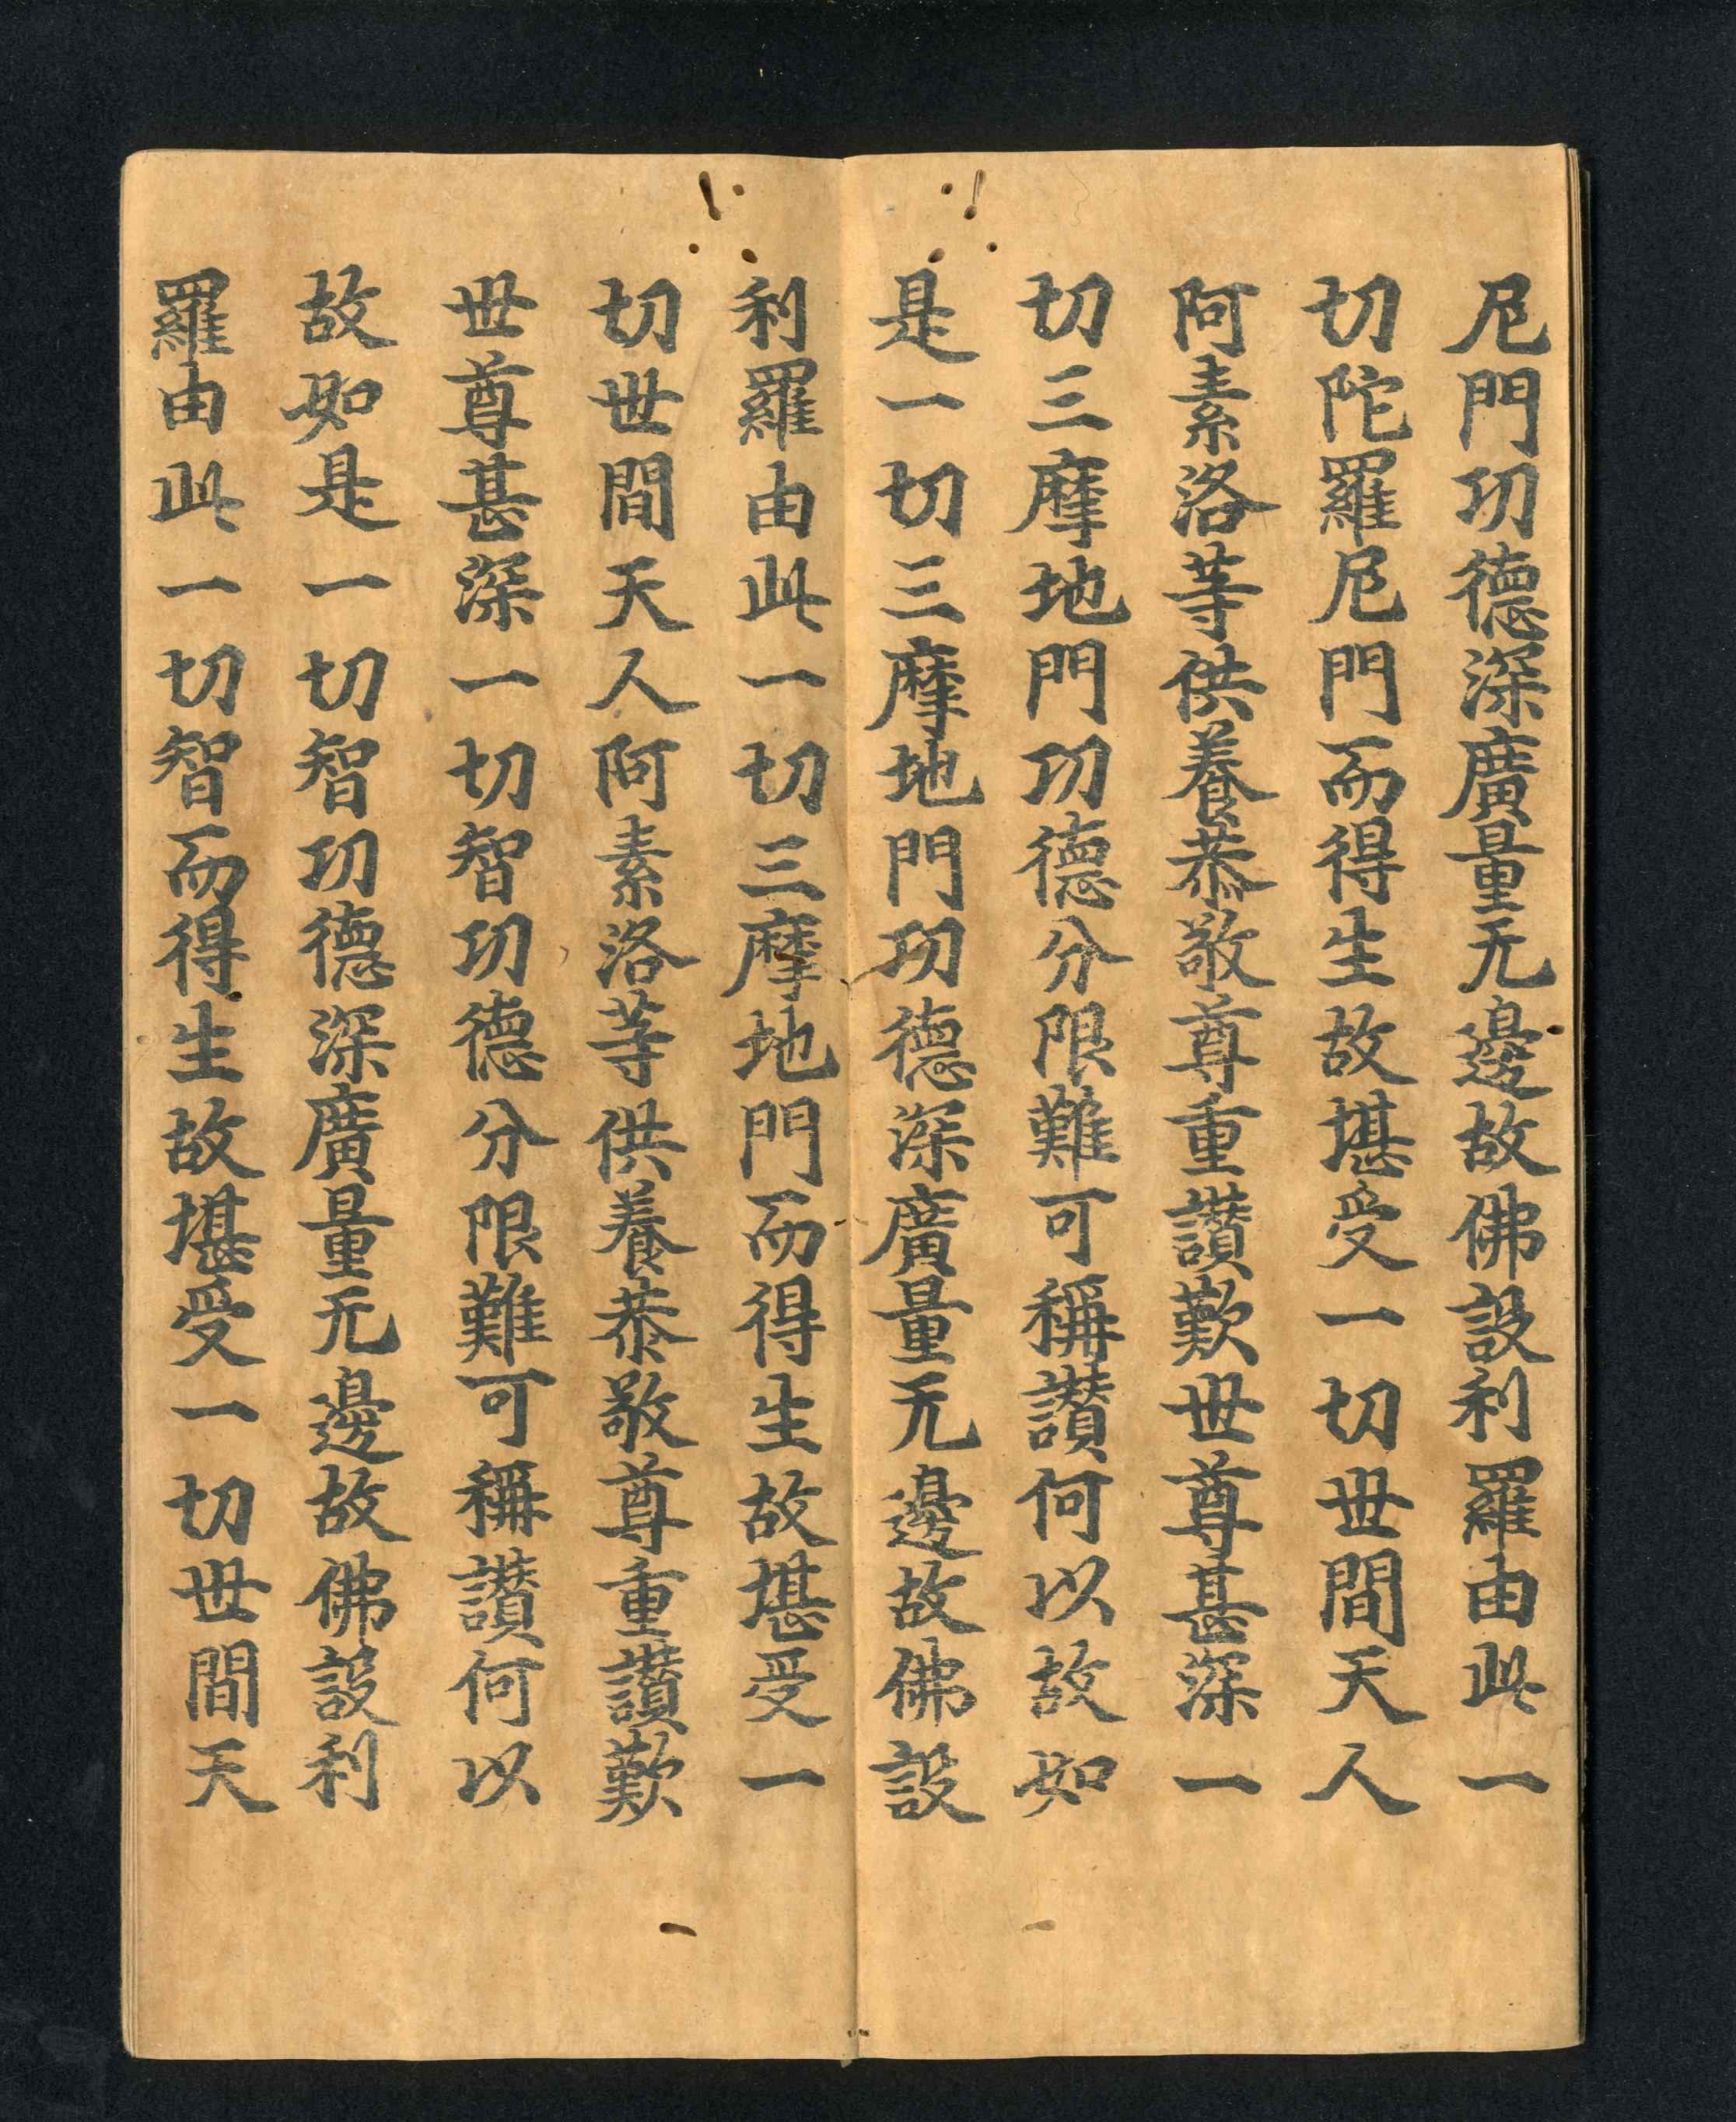 尼門功德深廣量无邊故佛設利羅由此一
切陀羅尼門而得生故堪受一切世間天人
阿素洛等供養恭敬尊重讚歎世尊甚深一
切三摩地門功德分限難可稱讚何以故如
是一切三摩地門功德深廣量无邊故佛設
利羅由此一切三摩地門而得生故堪受一
切世間天人阿素洛等供養恭敬尊重讚歎
世尊甚深一切智功德分限難可稱讚何以
故如是一切智功德深廣量无邊故佛設利
羅由此一切智而得生故堪受一切世間天